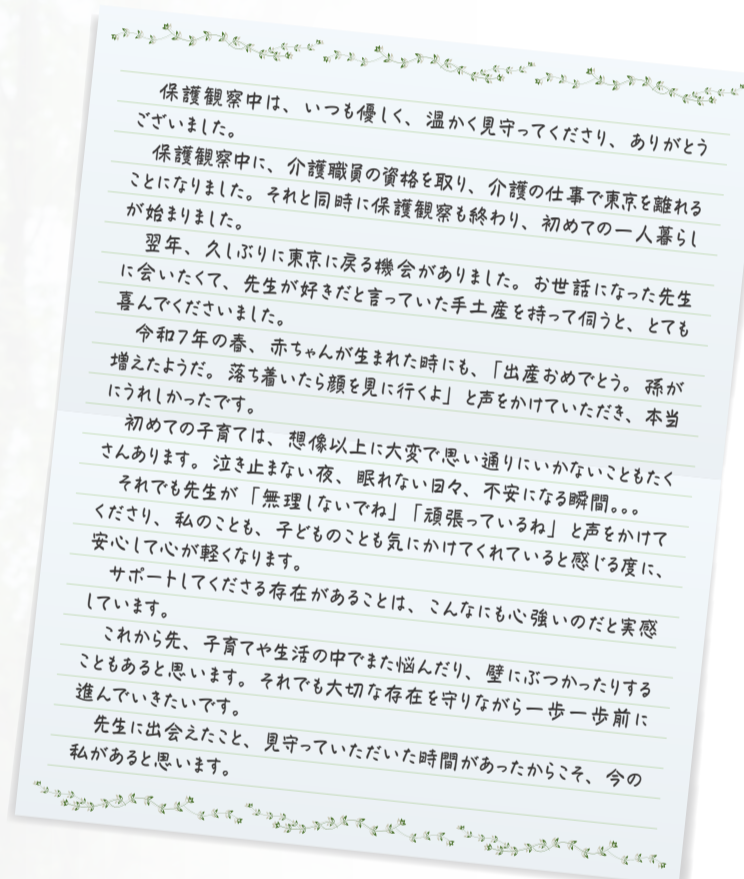 保護観察中は、いつも優しく、温かく見守ってくださり、ありがとう
ございました。
保護観察中に、介護職員の資格を取り、介護の仕事で東京を離れる
ことになりました。それと同時に保護観察も終わり、初めての一人暮らし
が始まりました。
翌年、久しぶりに東京に戻る機会がありました。お世話になった先生
に会いたくて、先生が好きだと言っていた手土産を持って伺うと、とても
喜んでくださいました。
令和7年の春、赤ちゃんが生まれた時にも、「出産おめでとう。孫が
増えたようだ。落ち着いたら顔を見に行くよ」と声をかけていただき、本当
にうれしかったです。
初めての子育ては、想像以上に大変で思い通りにいかないこともたく
さんあります。泣き止まない夜、眠れない日々、不安になる瞬間。。。
それでも先生が「無理しないでね」「頑張っているね」と声をかけて
くださり、私のことも、子どものことも気にかけてくれていると感じる度に、
安心して心が軽くなります。
サポートしてくださる存在があることは、こんなにも心強いのだと実感
しています。
これから先、子育てや生活の中でまた悩んだり、壁にぶつかったりする
こともあると思います。それでも大切な存在を守りながら一歩一歩前に
進んでいきたいです。
先生に出会えたこと、見守っていただいた時間があったからこそ、今の
私があると思います。